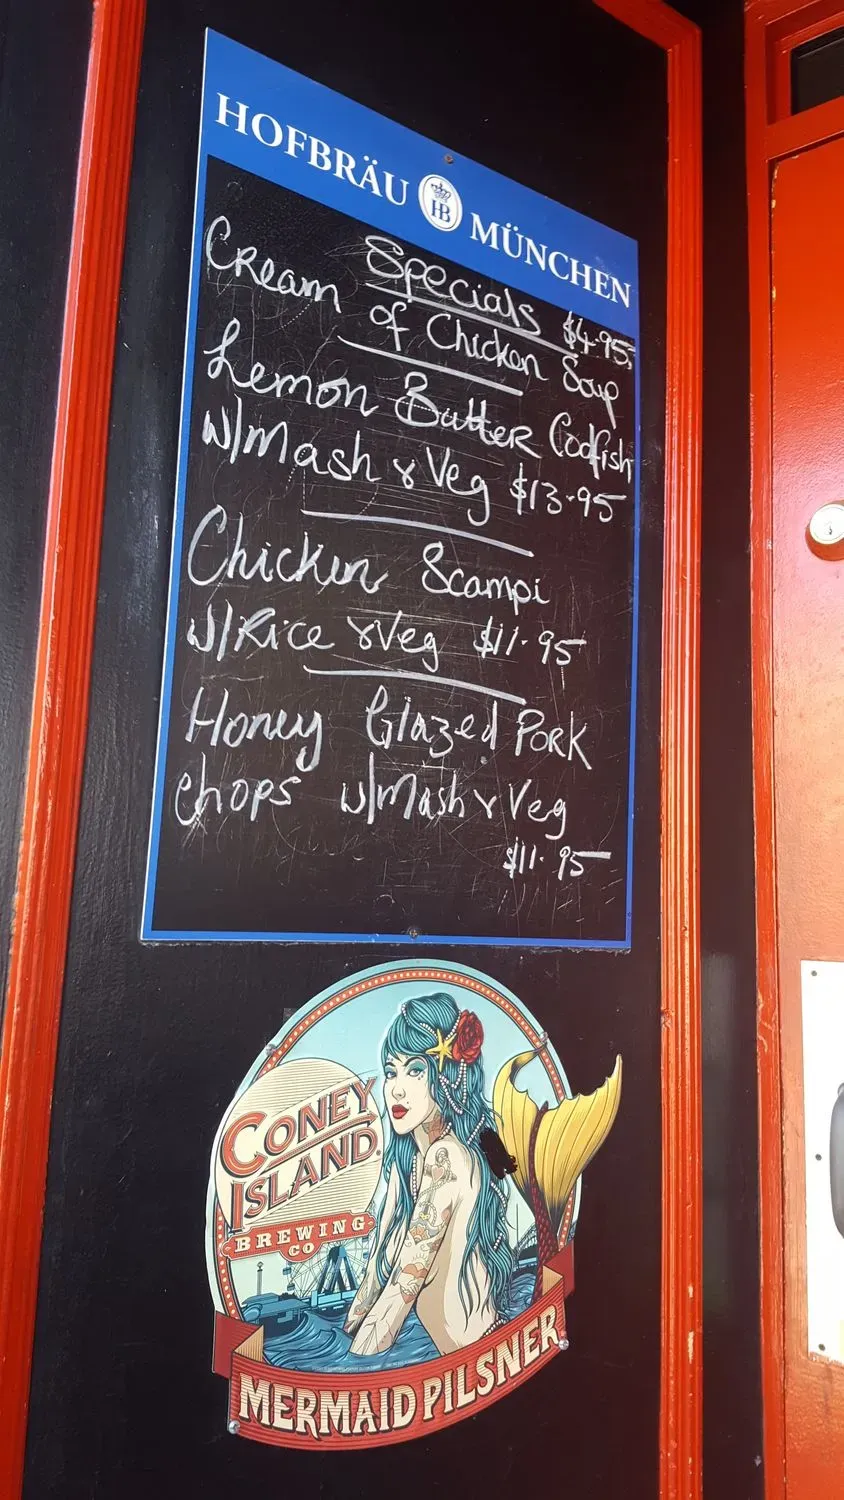 HOFBRÄU HB MÜNCHEN
Specials
Cream of Chicken Soup $4.95
Lemon Butter Codfish
w/Mash & Veg $13.95
Chicken Scampi
w/Rice & Veg $11.95
Honey Glazed Pork
Chops w/Mash & Veg
$11.95
CONEY
ISLAND
BREWING
CO
MERMAID PILSNER